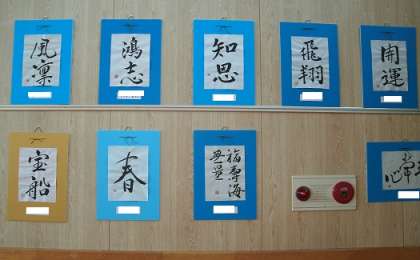 風凛
鴻志
知恩
飛翔
開運
宝船
春
福寿海
無量